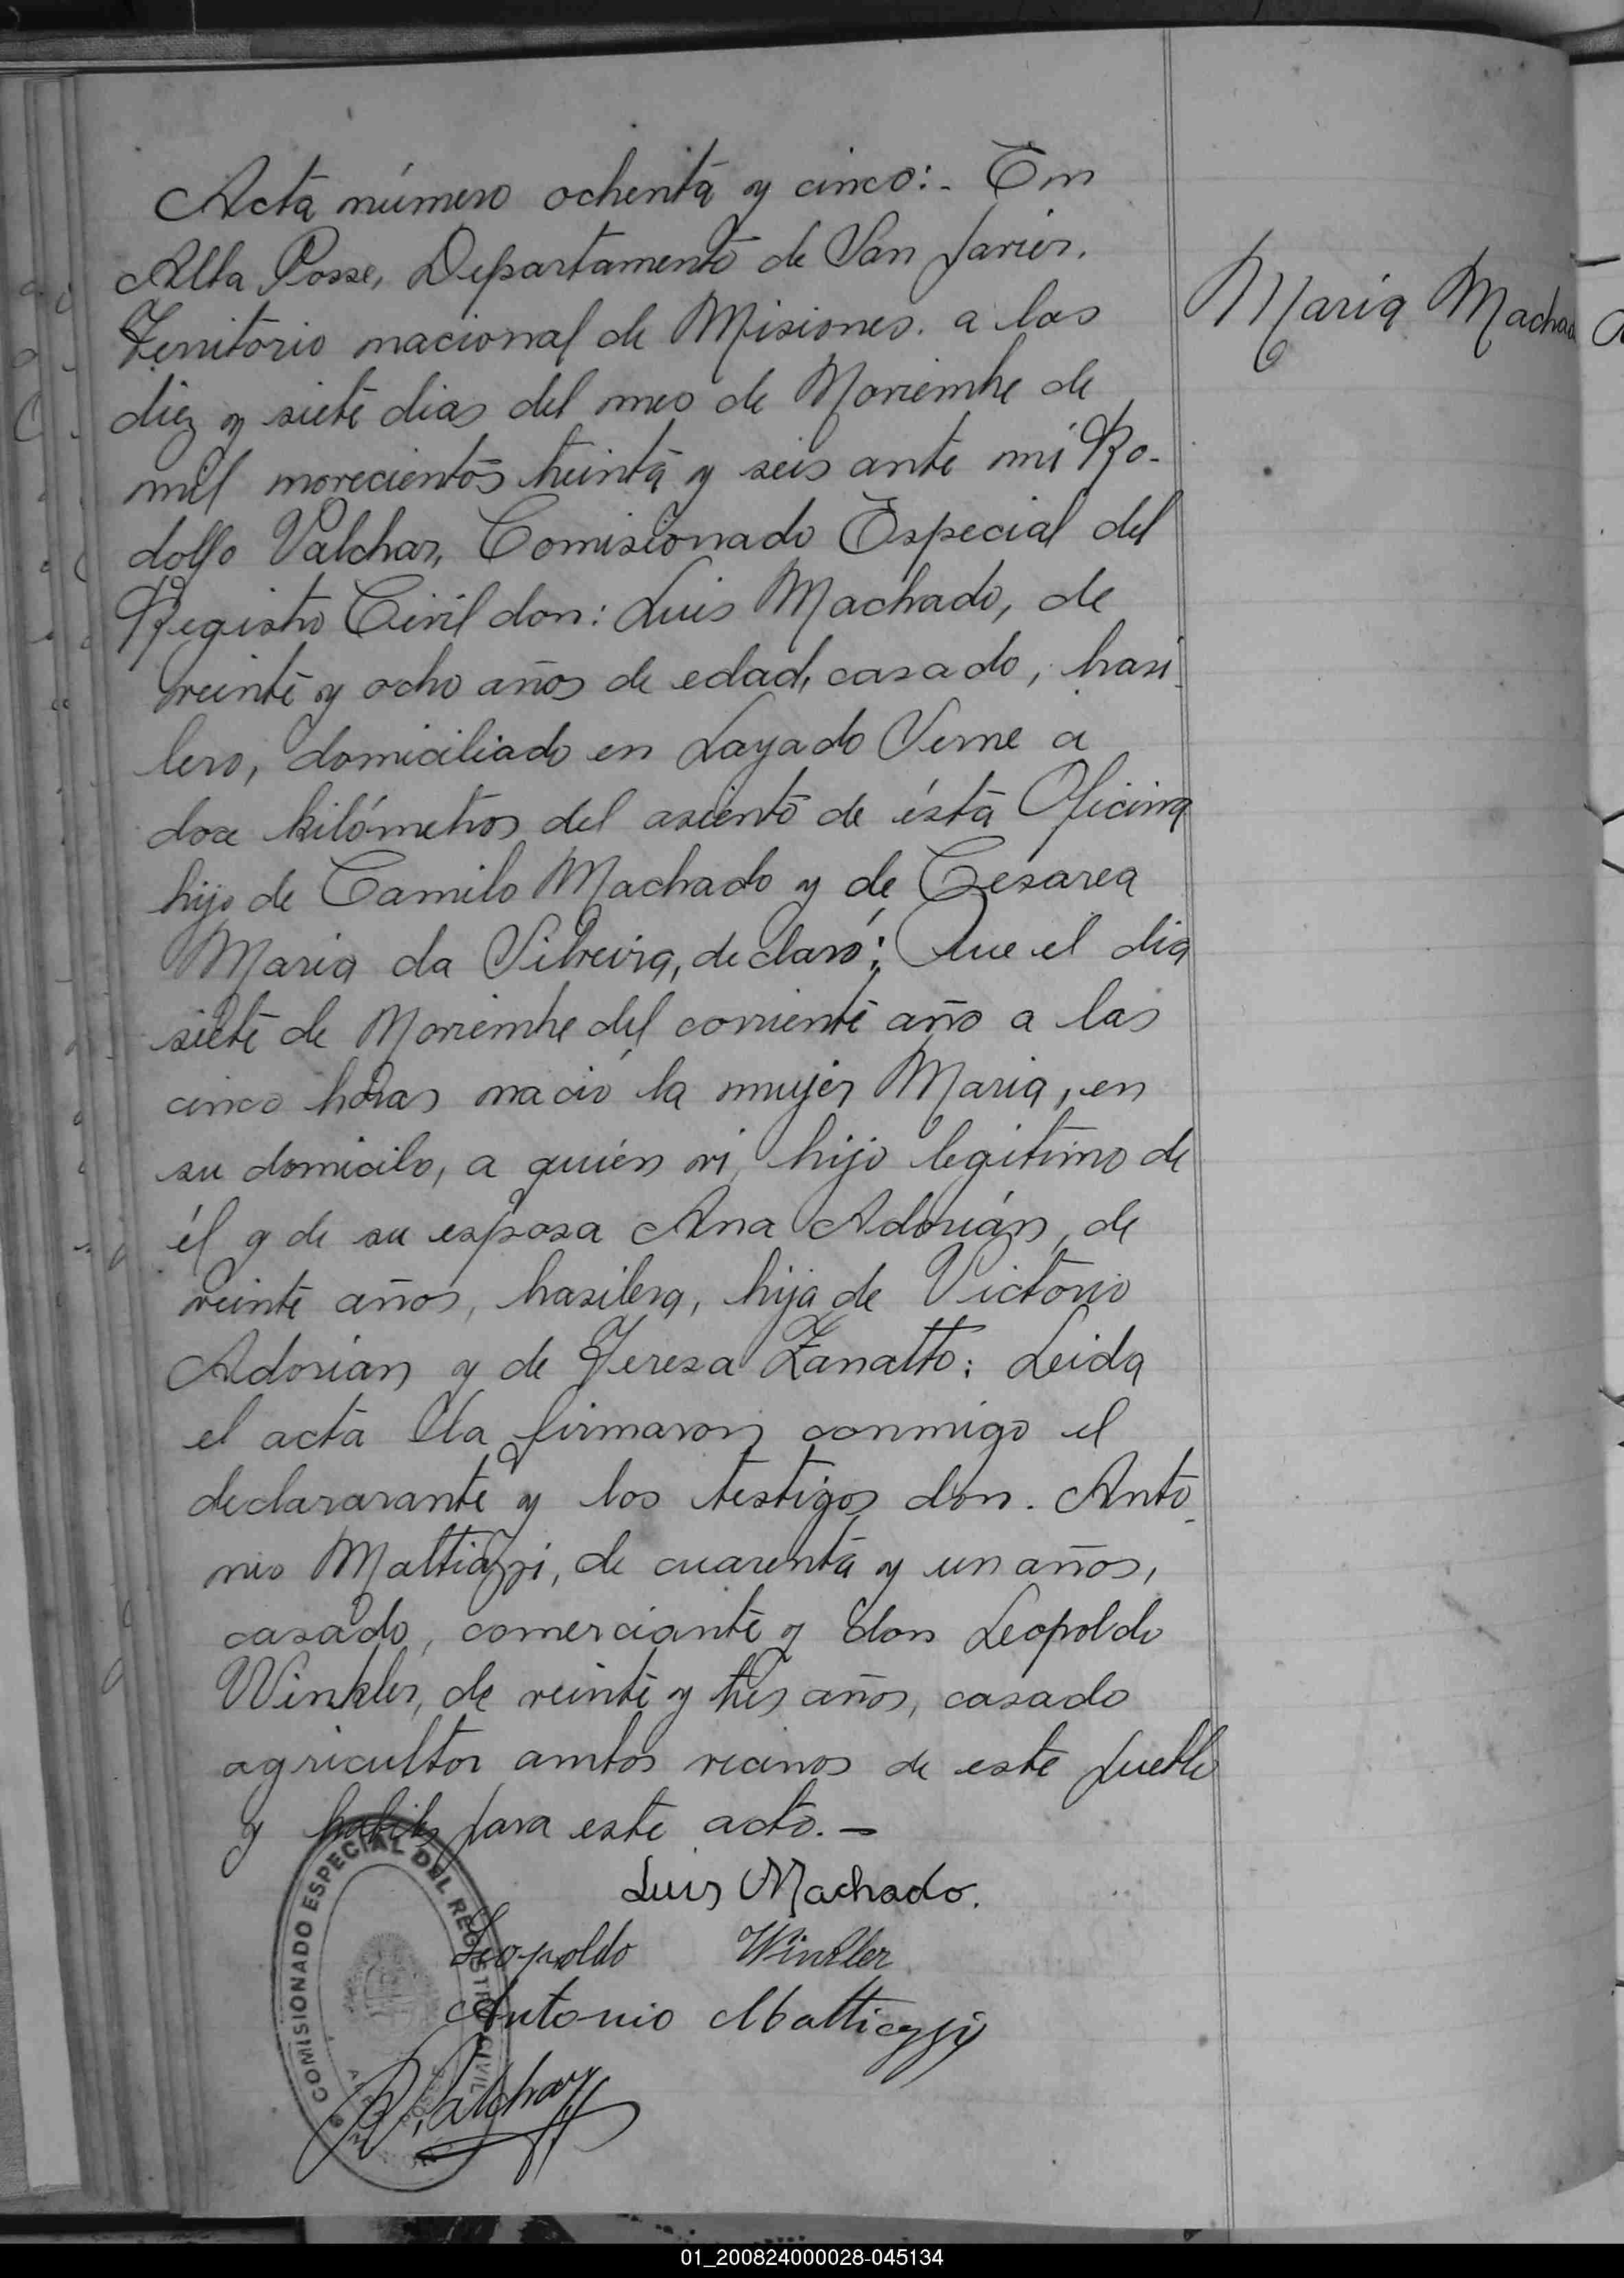 Acta número ochenta y cinco:- En
Alba Posse, Departamento de San Javier.
Territorio nacional de Misiones. a los
diez y siete dias del mes de Noviembre de
mil novecientos treinta y seis ante mi Ro-
dolfo Valchar, Comisionado Especial del
Registro Civil don: Luis Machado, de
veinte y ocho años de edad, casado, brasi-
lero, domiciliado en Layado Verne a
doce kilómetros del asiento de ésta Oficina
hijo de Camilo Machado y de Cesarea
Maria da Silveira, declaró: Que el dia
siete de Noviembre del corriente año a las
cinco horas nació la mujer Maria, en
su domicilo, a quién vi, hijo legitimo de
él y de su esposa Ana Adorián, de
veinte años, brasilera, hija de Victorio
Adorian y de Teresa Zanatto: Leida
el acta la firmaron conmigo el
declararante y los testigos don. Anto-
nio Mattiazzi, de cuarenta y un años,
casado, comerciante y don Leopoldo
Winkler, de veinte y tres años, casado
agricultor ambos vecinos de este pueblo
y habiles para este acto.-
Maria Machad
Luis Machado.
Leopoldo Winkler
Antonio Mattiazzi
R. Valchar
COMISIONADO ESPECIAL DEL REGISTRO CIVIL
01_200824000028-045134